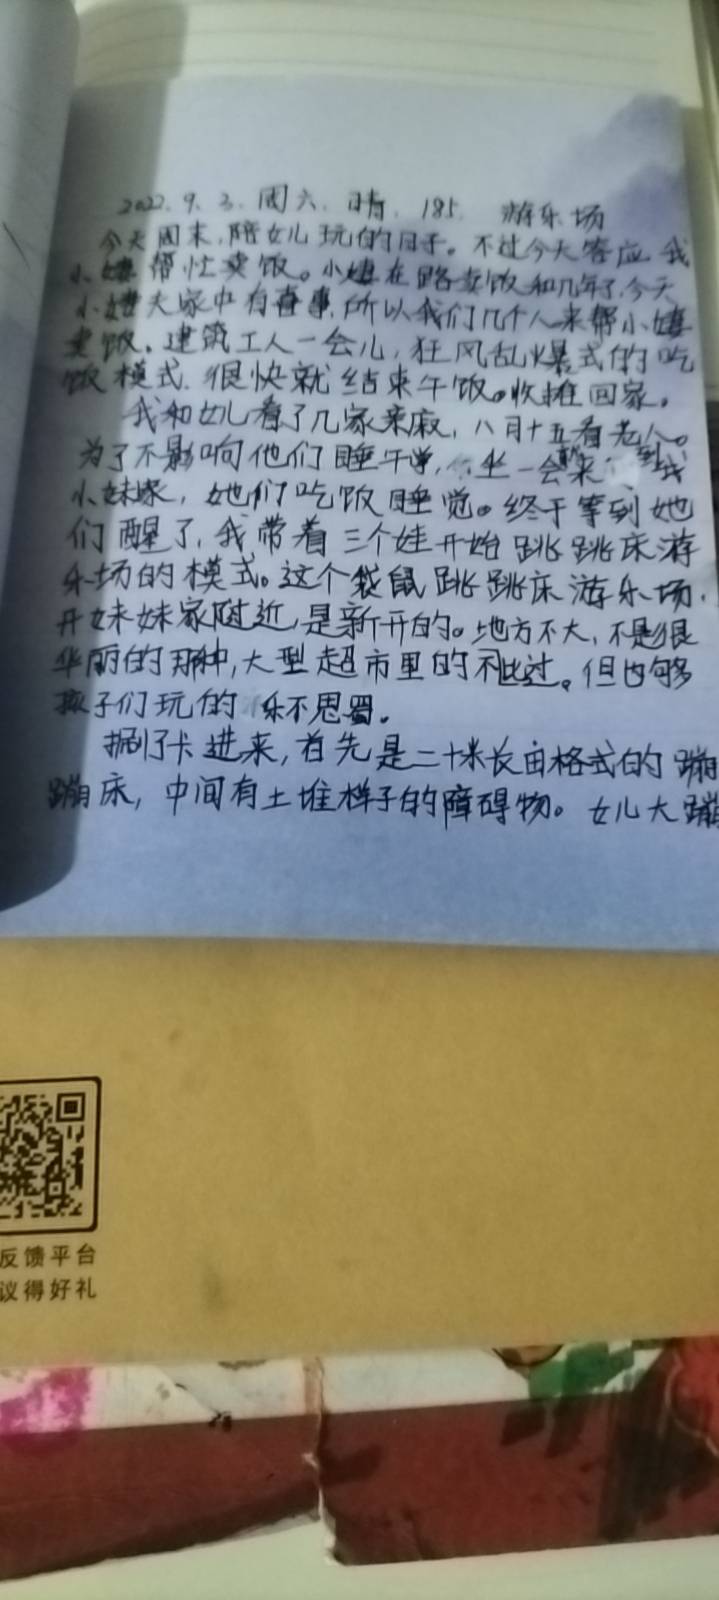 2022.9.3.周六.晴.185. 游乐场
今天周末,陪女儿玩的日子。不过今天答应我
小婶帮忙卖饭。小婶在路卖饭和几年了,今天
小婶夫家中有喜事,所以我们几个人来帮小婶
卖饭。建筑工人一会儿,狂风乱爆式的吃
饭模式.很快就结束午饭。收摊回家。
我和女儿看了几家亲戚,八月十五看老人。
为了不影响他们睡午觉,坐一会就来到我
小妹家,她们吃饭睡觉。终于等到她
们醒了,我带着三个娃开始跳跳床游
乐场的模式。这个袋鼠跳跳床游乐场,
开妹妹家附近,是新开的。地方不大,不是很
华丽的那种,大型超市里的不比过。但也够
孩子们玩的乐不思蜀。
刷了卡进来,首先是二十米长田格式的蹦
蹦床,中间有土堆样子的障碍物。女儿大蹦
反馈平台
议得好礼